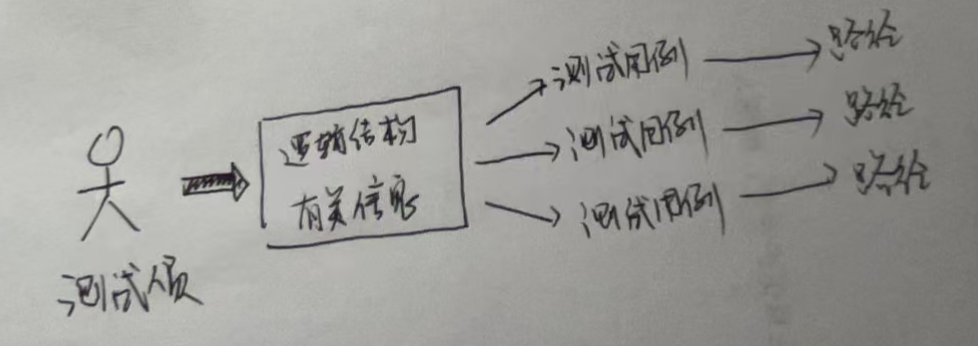 测试人员
逻辑结构
有关信息
测试用例
路径
测试用例
路径
测试用例
路径